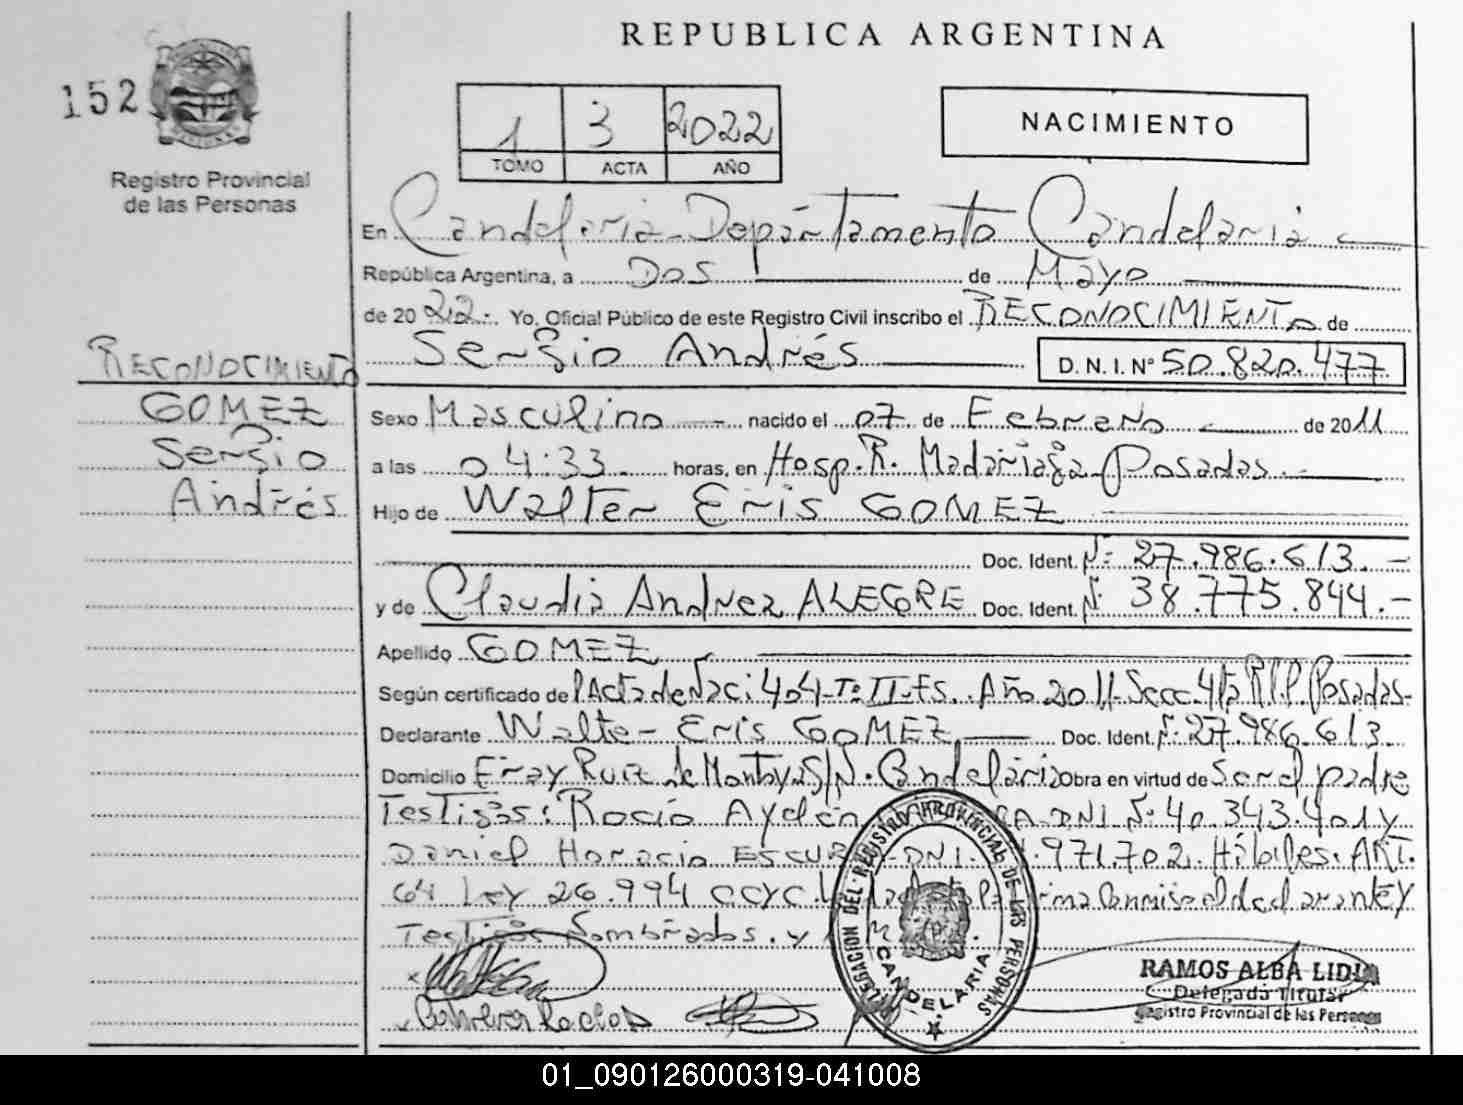 REPUBLICA ARGENTINA
152
1 3 2022
TOMO ACTA AÑO
NACIMIENTO
Registro Provincial
de las Personas
En Candelaria - Departamento Candelaria
República Argentina, a Dos de Mayo
de 2022. Yo, Oficial Público de este Registro Civil inscribo el RECONOCIMIENTO de
Sergio Andrés D.N.I. Nº 50.820.477
RECONOCIMIENTO
GOMEZ
Sergio
Andrés
Sexo Masculino nacido el 07 de Febrero de 2011
a las 04:33 horas, en Hosp. R. Madariaga Posadas.
Hijo de Walter Eris GOMEZ
Doc. Ident. Nº 27.986.613.-
y de Claudia Andrea ALEGRE Doc. Ident. Nº 38.775.844.-
Apellido GOMEZ
Según certificado de Acta de Naci: 404-Tº II-Es. Año 2011-Secc 4ta R.P.P. Posadas-
Declarante Walter Eris GOMEZ Doc. Ident. Nº 27.986.613.
Domicilio Fray Ruiz de Montoya S/N. Candelaria Obra en virtud de Ser el padre
Testigos: Rocío Ayelén DNI Nº 40.343.401 y
Daniel Horacio DNI. .971.702. Hábiles. ART.
64 Ley 26.994 CCYC. firma Conmigo el declarante y
Testigos Nombrados. y
DELEGACION DEL REGISTRO PROVINCIAL DE LAS PERSONAS
CANDELARIA
RAMOS ALBA LIDIA
Delegada Titular
Registro Provincial de las Personas
01_090126000319-041008